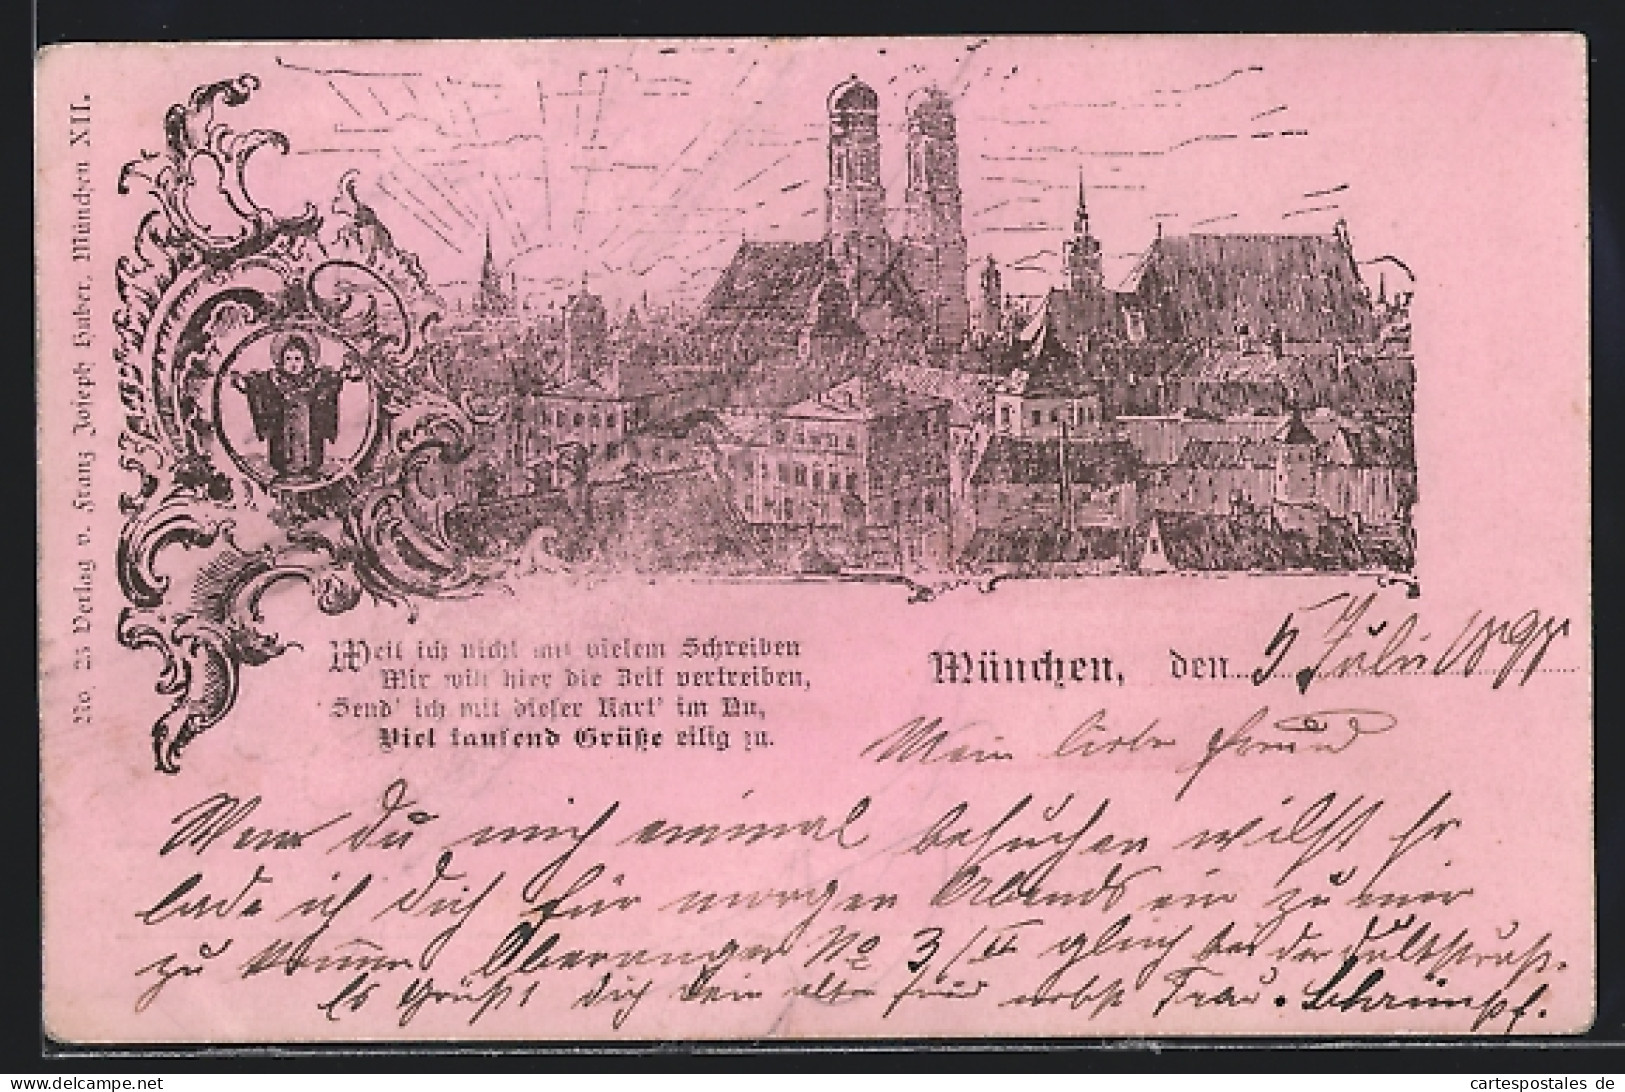 No. 25 Verlag v. Franz Joseph Huber, München XII.
Weil ich nicht mit vielem Schreiben
Mir will hier die Zeit vertreiben,
Send' ich mit dieser Kart' im Nu,
Viel tausend Grüße eilig zu.
München, den 5 Juli 1898
Mein lieber Freund
Wenn du mich einmal besuchen willst so
lade ich dich für morgen Abends ein zu mir
zu kommen Oberanger No 3/II gleich bei der Dultstraß.
Es Grüßt dich dein alter Freund nebst Frau. Schrimpf.
cartespostales de